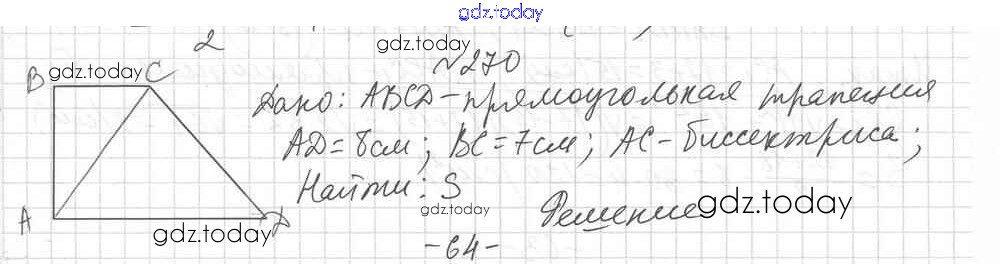 gdz.today
2
gdz.today
№270
B gdz.today C
Дано: ABCD - прямоугольная трапеция
AD = 8см; BC = 7см; AC - биссектриса;
Найти: S
gdz.today
A
D
Решение
gdz.today
gdz.today
-64-